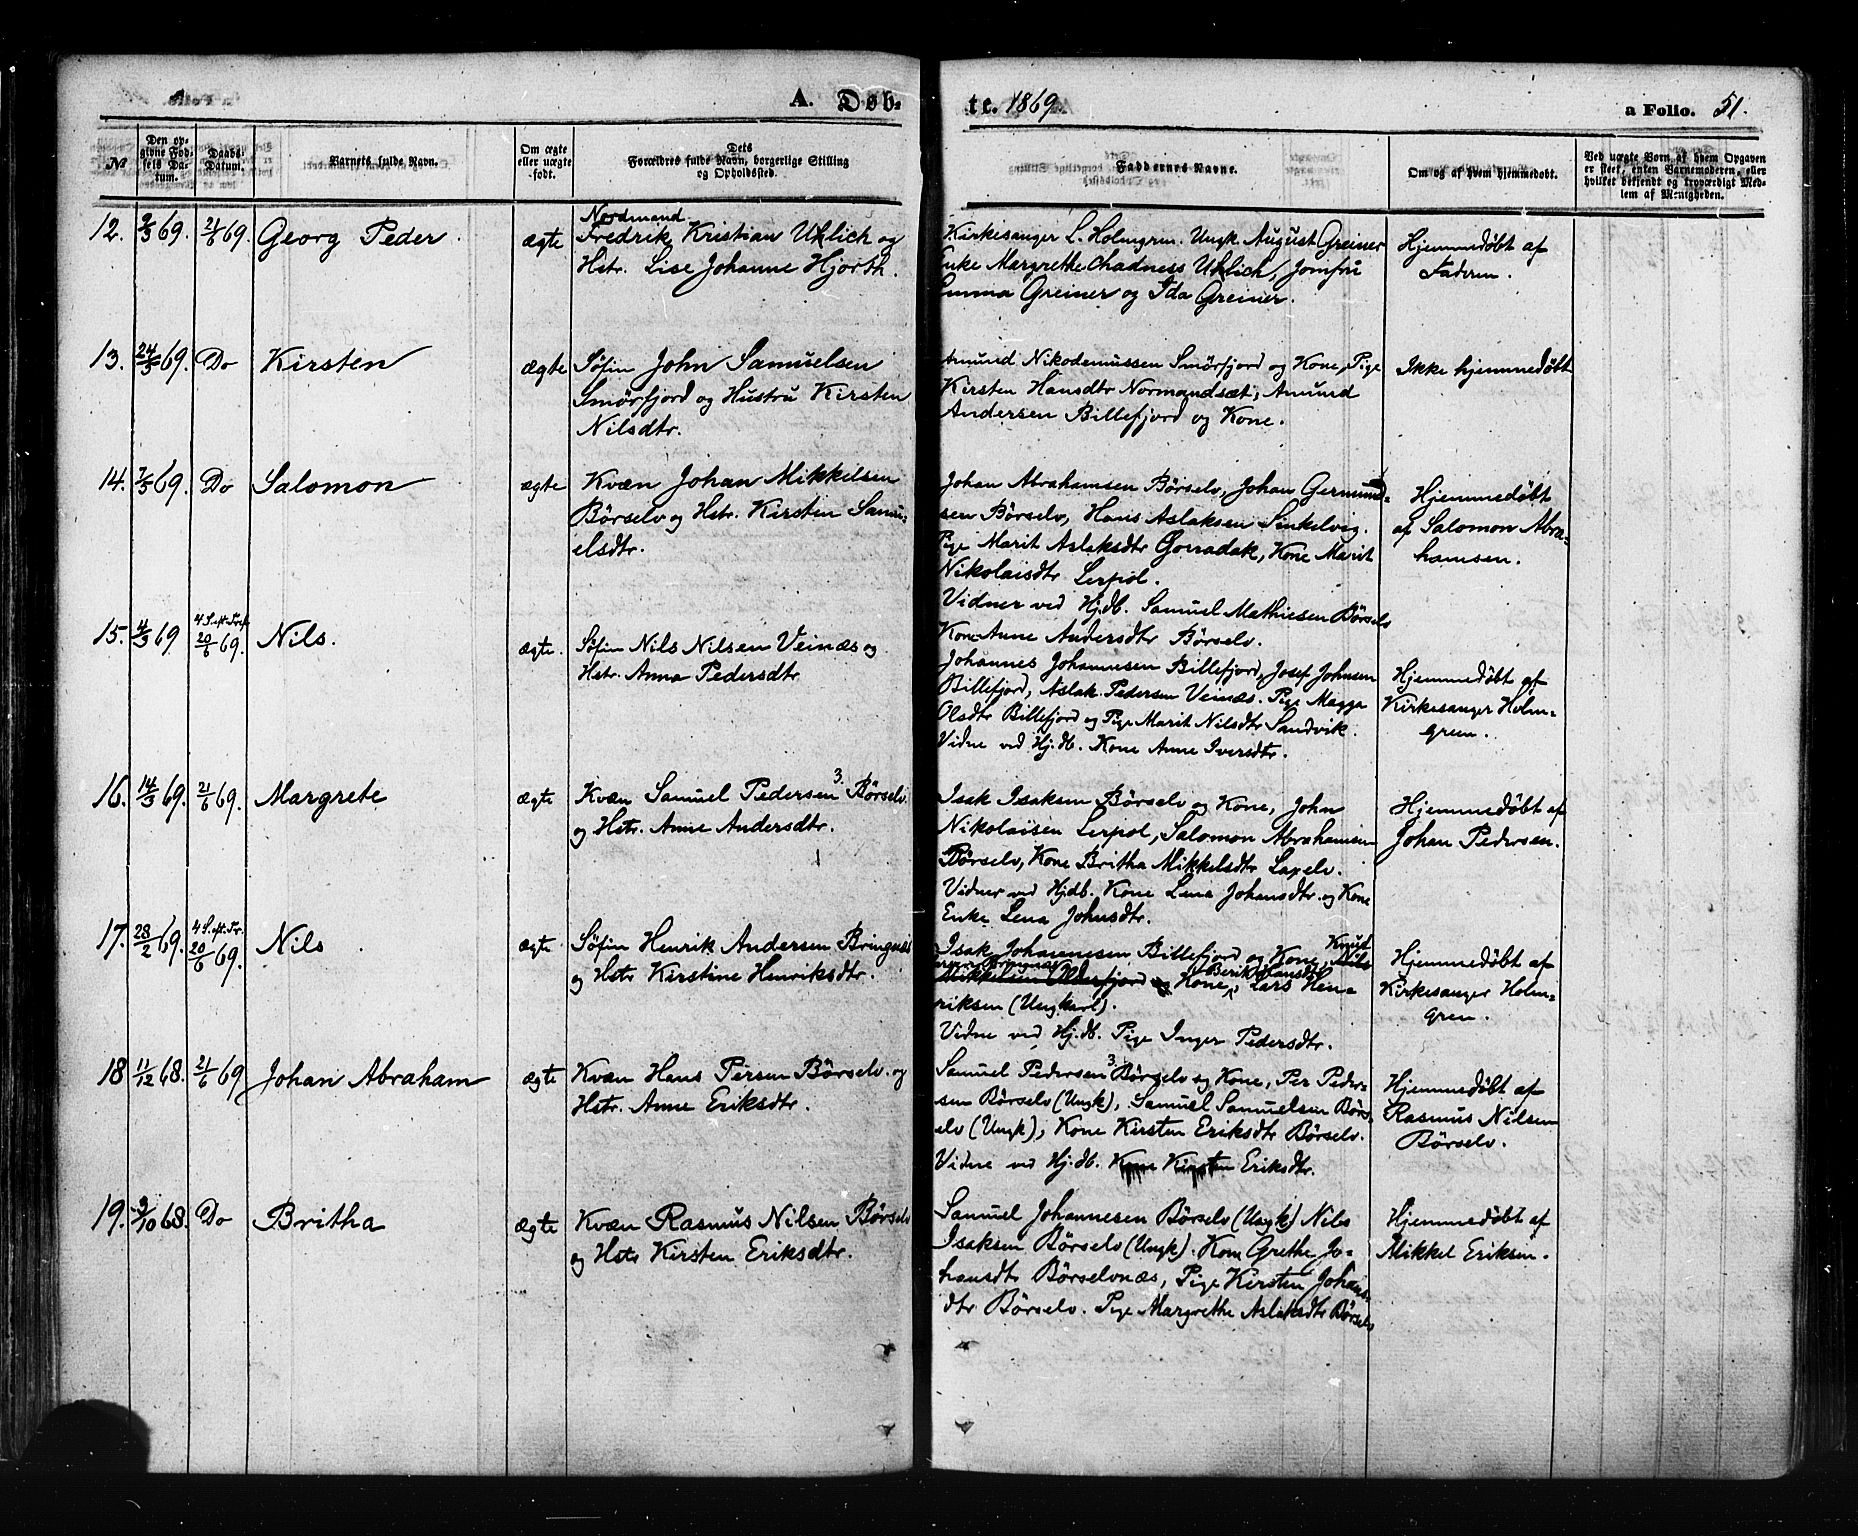 A. Døb- te. 1869. a Folio. 51.
№ | Den op-givne Fød-sels Da-tum. | Daabs-Datum. | Barnets fulde Navn. | Om ægte eller uægte født. | Dets Forældres fulde Navn, borgerlige Stilling og Opholdssted. | Faddernes Navne. | Om og af hvem hjemmedøbt. | Ved uægte Børn af hvem Opgaven er skeet, enten Barnemoderen, eller hvilket bekjendt og troværdigt Medlem af Menigheden.
12. 2/3 69. 21/6 69. Georg Peder. ægte
Nordmand
Fredrik Kristian Uhlich og
Hstr. Lise Johanne Hjorth.
Kirkesanger L. Holmgren. Ungk. August Greiner
Enke Margrethe Chadness Uhlich, Jomfru
Emma Greiner og Ida Greiner.
Hjemmedøbt af
Faderen.
13. 24/3 69. Do Kirsten ægte
Søfin John Samuelsen
Smörfjord og Hustru Kirsten
Nilsdtr.
Amund Nikodemussen Smörfjord og Kone, Pige
Kirsten Hansdtr Normandsæt, Amund
Andersen Billefjord og Kone.
Ikke hjemmedøbt
14. 7/3 69. Do Salomon ægte
Kvæn Johan Mikkelsen
Börselv og Hstr. Kirsten Samu-
elsdtr.
Johan Abrahamsen Börselv, Johan Germund-
sen Börselv, Hans Aslaksen Sinkelvig.
Pige Marit Aslaksdtr Gorradak, Kone Marit
Nikolaisdtr Lerpol.
Vidner ved Hj.db. Samuel Mathiesen Börselv
Kone Anne Andersdtr Börselv.
Hjemmedöbt
af Salomon Abra-
hamsen.
15. 4/3 69 4 S. eft. Tref. 20/6 69. Nils. ægte.
Søfin Nils Nilsen Veinæs og
Hstr. Anna Pedersdtr
Johannes Johannesen Billefjord, Josef Johnsen
Billefjord, Aslak Pedersen Veinæs. Pige Magga
Olsdtr Billefjord og Pige Marit Nilsdtr Sandvik.
Vidne ved Hj.db. Kone Anne Iversdtr.
Hjemmedøbt af
Kirkesanger Holm-
green.
16. 14/3 69. 21/6 69. Margrete ægte
Kvæn Samuel Pedersen 3. Börselv
og Hstr. Anne Andersdtr.
Isak Isaksen Börselv og Kone, John
Nikolaisen Lerpol, Salomon Abrahamsen
Börselv, Kone Britha Mikkelsdtr Laxelv.
Vidner ved Hjdb. Kone Lena Johansdtr. og Kone
Enke Lena Johnsdtr.
Hjemmedøbt af
Johan Pedersen.
17. 28/2 69. 4 S. eft. Tr. 20/6 69. Nils ægte
Søfin Henrik Andersen Bringnæs
og Hstr Kirstine Henriksdtr.
Isak Johannesen Billefjord og Kone, Knud Nils
Mikkelsen Olderfjord og Kone, Berit Hansdtr Lars Hen-
riksen (Ungkarl).
Vidne ved Hj.db. Pige Inger Pedersdtr.
Hjemmedøbt af
Kirkesanger Holm-
gren.
18 11/12 68. 21/6 69 Johan Abraham ægte
Kvæn Hans Persen Börselv. og
Hstr. Anne Eriksdtr.
Samuel Pedersen 3. Börselv og Kone, Per Peder-
sen Börselv (Ungk), Samuel Samuelsen Börs-
elv (Ungk), Kone Kirsten Eriksdtr Börselv.
Vidne ved Hj.db. Kone Kirsten Eriksdtr.
Hjemmedøbt af
Rasmus Nilsen
Börselv.
19. 9/10 68. Do Britha ægte
Kvæn Rasmus Nilsen Börselv
og Hstr Kirsten Eriksdtr.
Samuel Johannesen Börselv (Ungk) Nils
Isaksen Börselv (Ungk). Kone Grethe Jo-
hansdtr Börselvnæs, Pige Kirsten Johans-
dtr Börselv. Pige Margrethe Aslaksdtr Börselv
Hjemmedøbt af
Mikkel Eriksen.